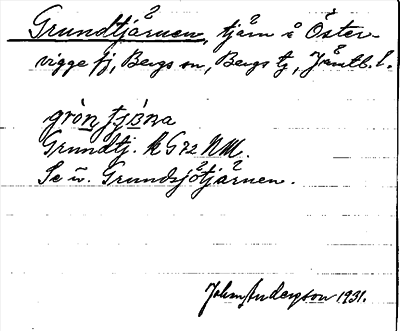 Grundtjärnen, tjärn i Öster-
vigge fj, Bergs sn, Bergs tg, Jämtl. l.
gròn tjòna
Grundtj. k G 72 NM.
Se u. Grundsjötjärnen.
John Anderson 1931.